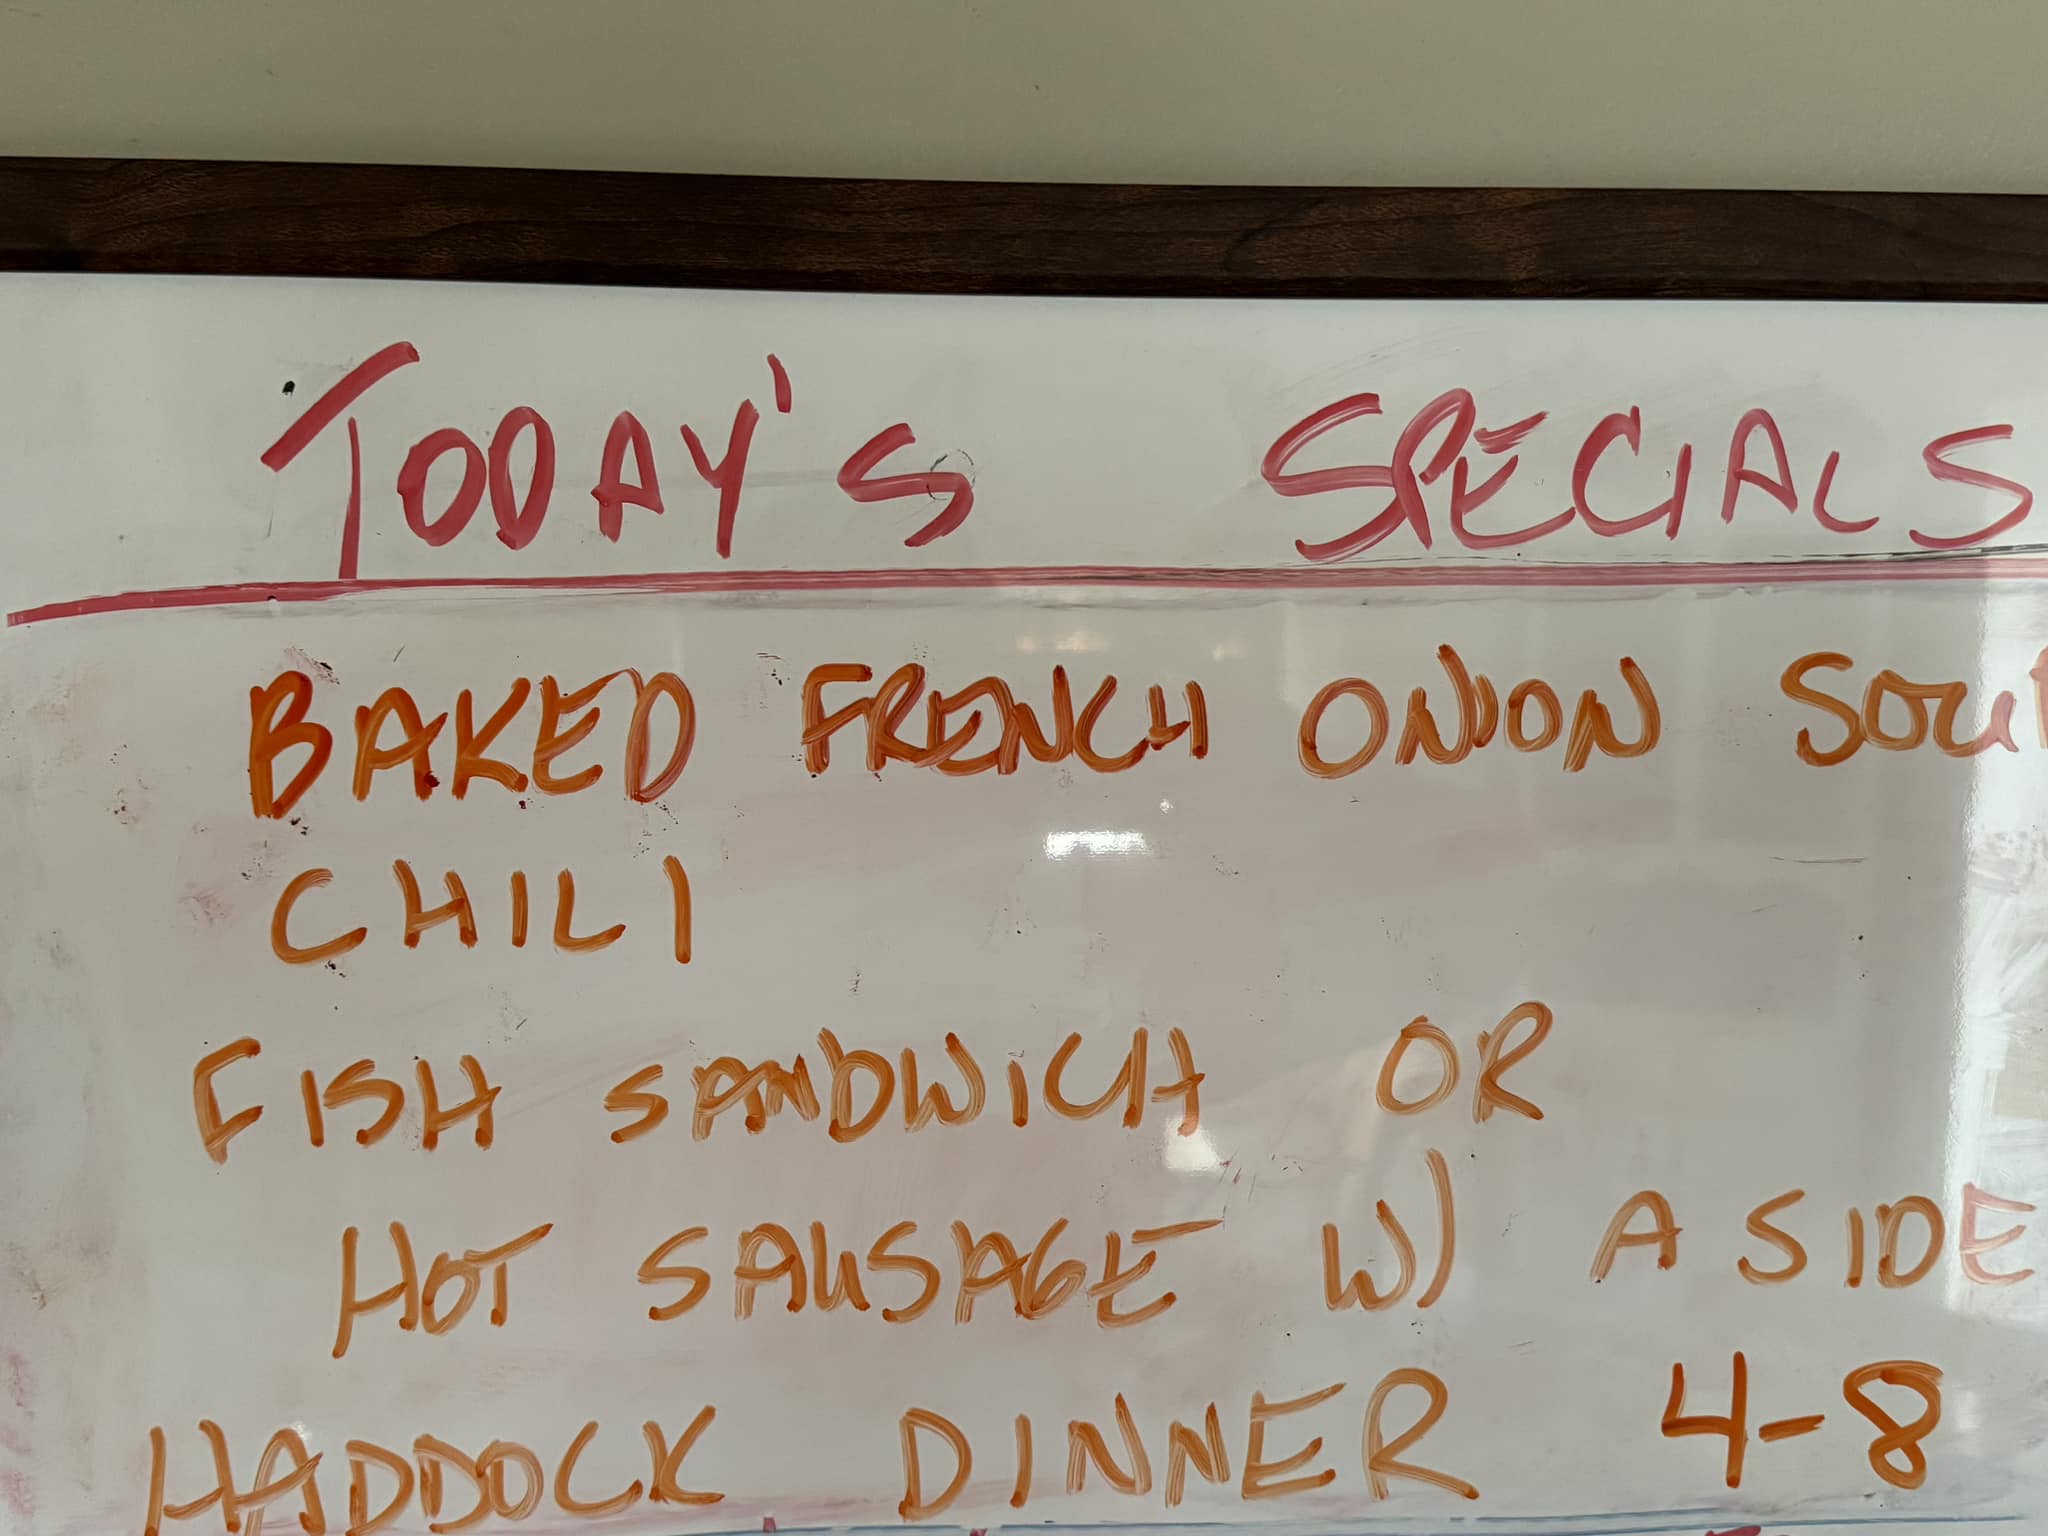 TODAY'S SPECIALS
BAKED FRENCH ONION SOUP
CHILI
FISH SANDWICH OR
HOT SAUSAGE W/ A SIDE
HADDOCK DINNER 4-8